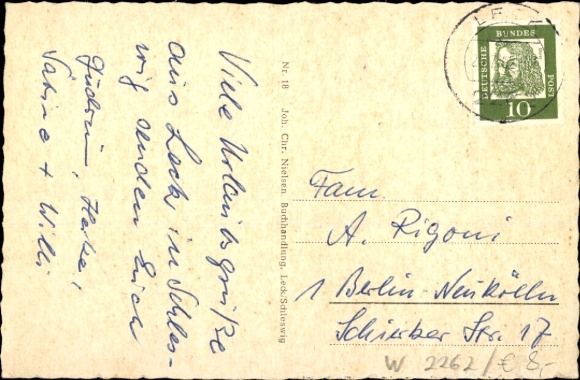 Viele Urlaubsgrüße
aus Leck in Schles-
wig senden Euch
Gudrun, Heike,
Sabine + Willi
Nr. 18 Joh. Chr. Nielsen Buchhandlung, Leck/Schleswig
LECK
DEUTSCHE
BUNDES
POST
10
Fam.
A. Rigoni
1 Berlin-Neukölln
Schierker Str. 17
W 2262/€ 8,-